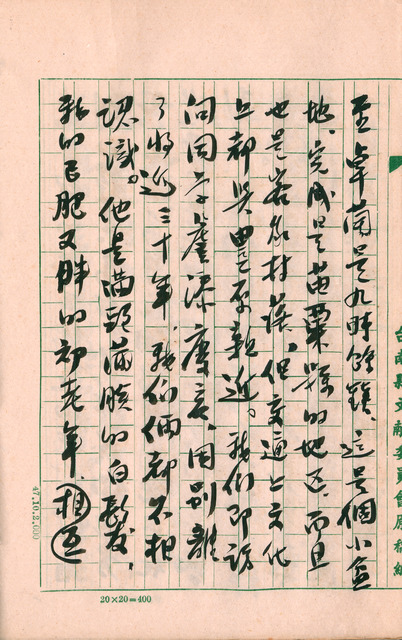 台南縣文献委員會原稿紙
至卓蘭是九時餘鎮。這是個小盆
地。完成是苗栗縣的地区。而且
也是客家村落。但交通上文化
上都与豐原親近。我们即訪
问同学詹添慶家。因别離
了將近三十年,我们倆都不相
認識。他是滿頭滿臉的白鬍发,
我的已肥又胖的初老年。相
47.10.2,000
20×20=400